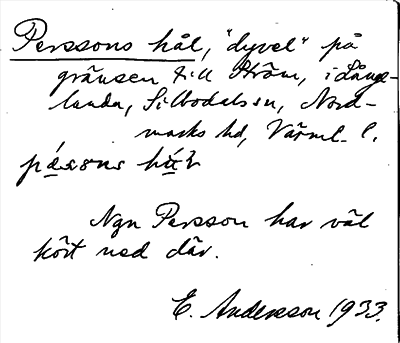 Perssons hål, "dyvel" på
gränsen till Ström, i Långe-
landa, Sillbodals sn, Nord-
marks hd, Värml. l.
Ngn Persson har väl
kört ned där.
E. Andersson 1933.